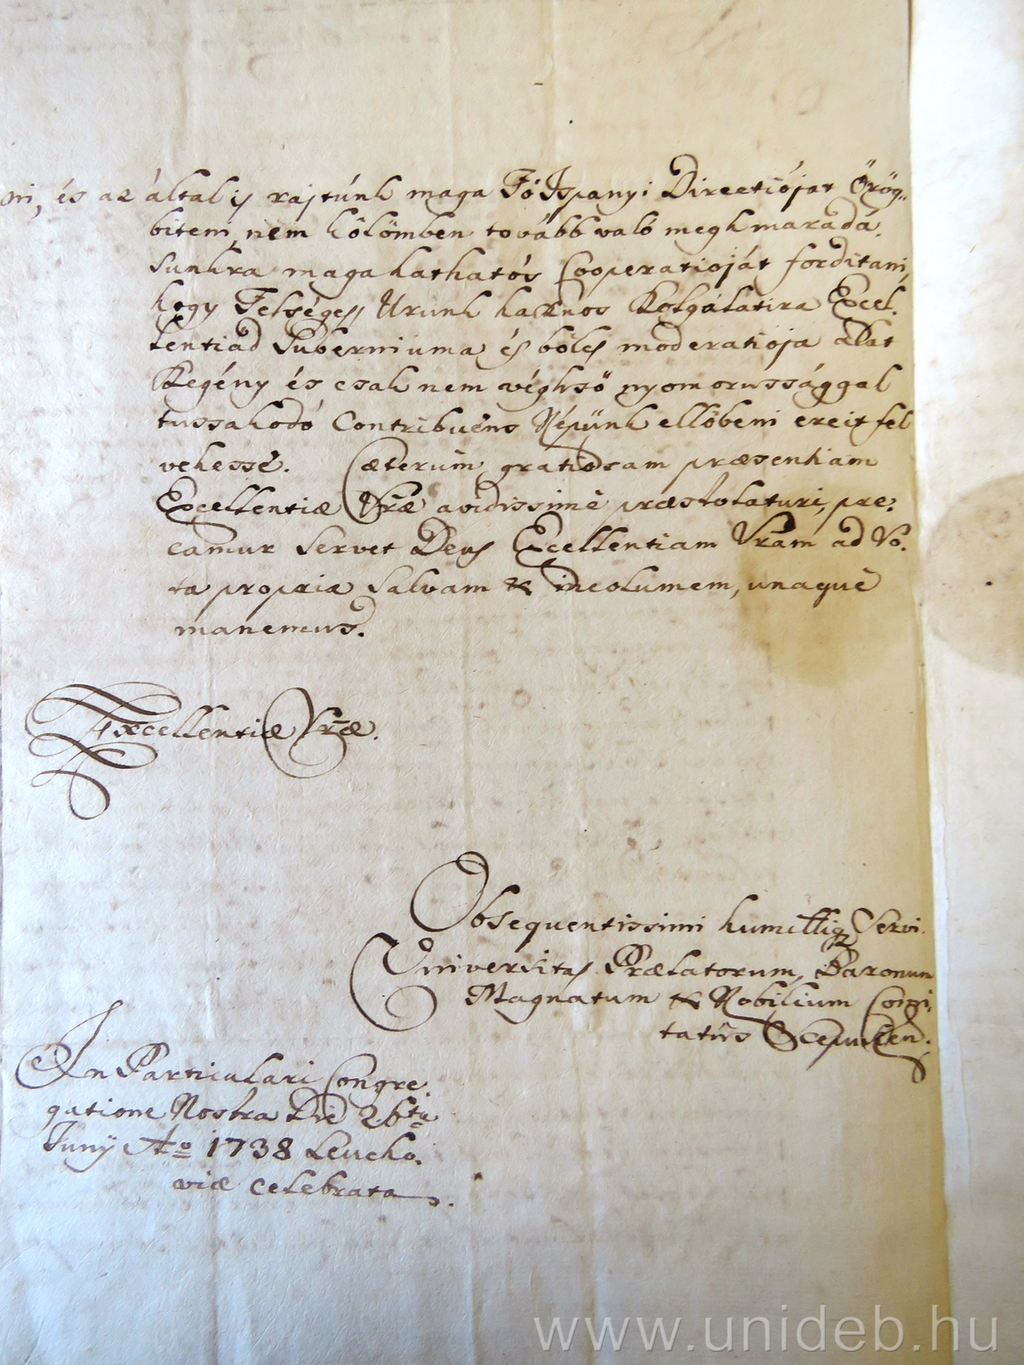 ni, és az által is rajtúnk maga Fö Ispanyi Directióját Örög-
biteni, nem kölömben tovább való meghmaradá.
sunkra maga hathatós Cooperatioját forditani,
hogy Felséges Urunk hasznos Szolgálatira Excel.
lentiád Guberniuma és bölcs moderatiója alat
Szegény és csak nem véghsö nyomorussággal
tussakodó Contribuens Népünk ellöbeni ereit fel
vehessé. Cæterum gratiosam præsentiam
Excellentiæ Vræ avidissimè præstolaturi, pre:
camur Servet Deus Excellentiam Vram ad Vo.
ta propria Salvam & incolumem, unaque
manemus.
Excellentiæ Vræ.
Obsequentissimi humillimiq Servi
Universitas Prælatorum, Baronum
Magnatum & Nobilium Comi.
tatûs Scepusien.
In Particulari Congre.
gatione Nostra Die 26ta
Junÿ Ao 1738 Leucho.
viæ celebrata.
www.unideb.hu